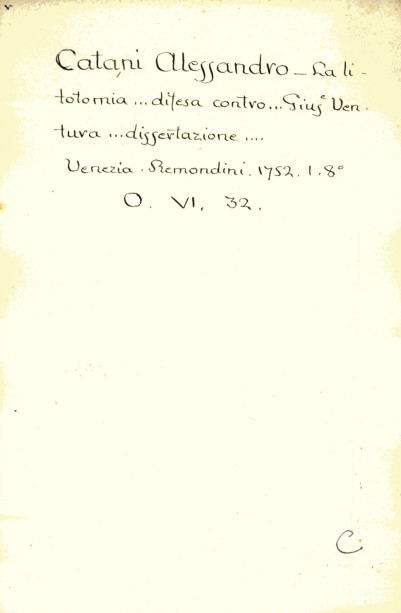 Catani Alessandro — La li-
totomia ... difesa contro ... Giusᵉ Ven-
tura ... dissertazione ....
Venezia. Remondini. 1752. 1. 8°
O. VI. 32.
C